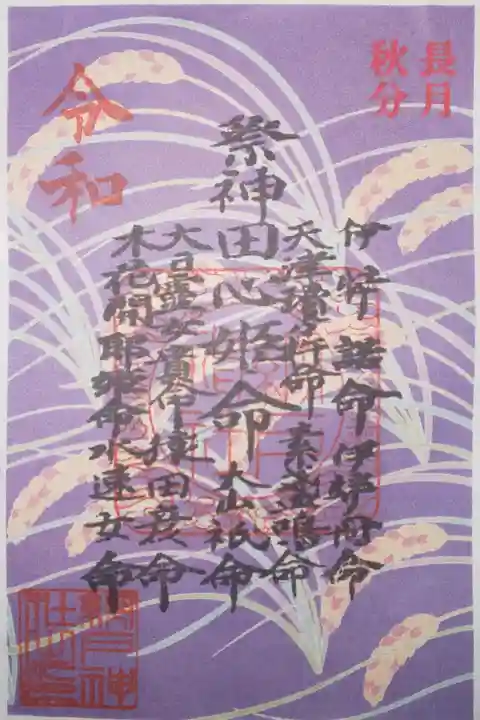 長月
秋分
伊弉諾命 伊弉冊命
天津瓊々杵命 素盞嗚命
祭神 田心姫命 大山祇命
大日孁女貴命 猿田彦命
木花開耶姫命 水速女命
令和